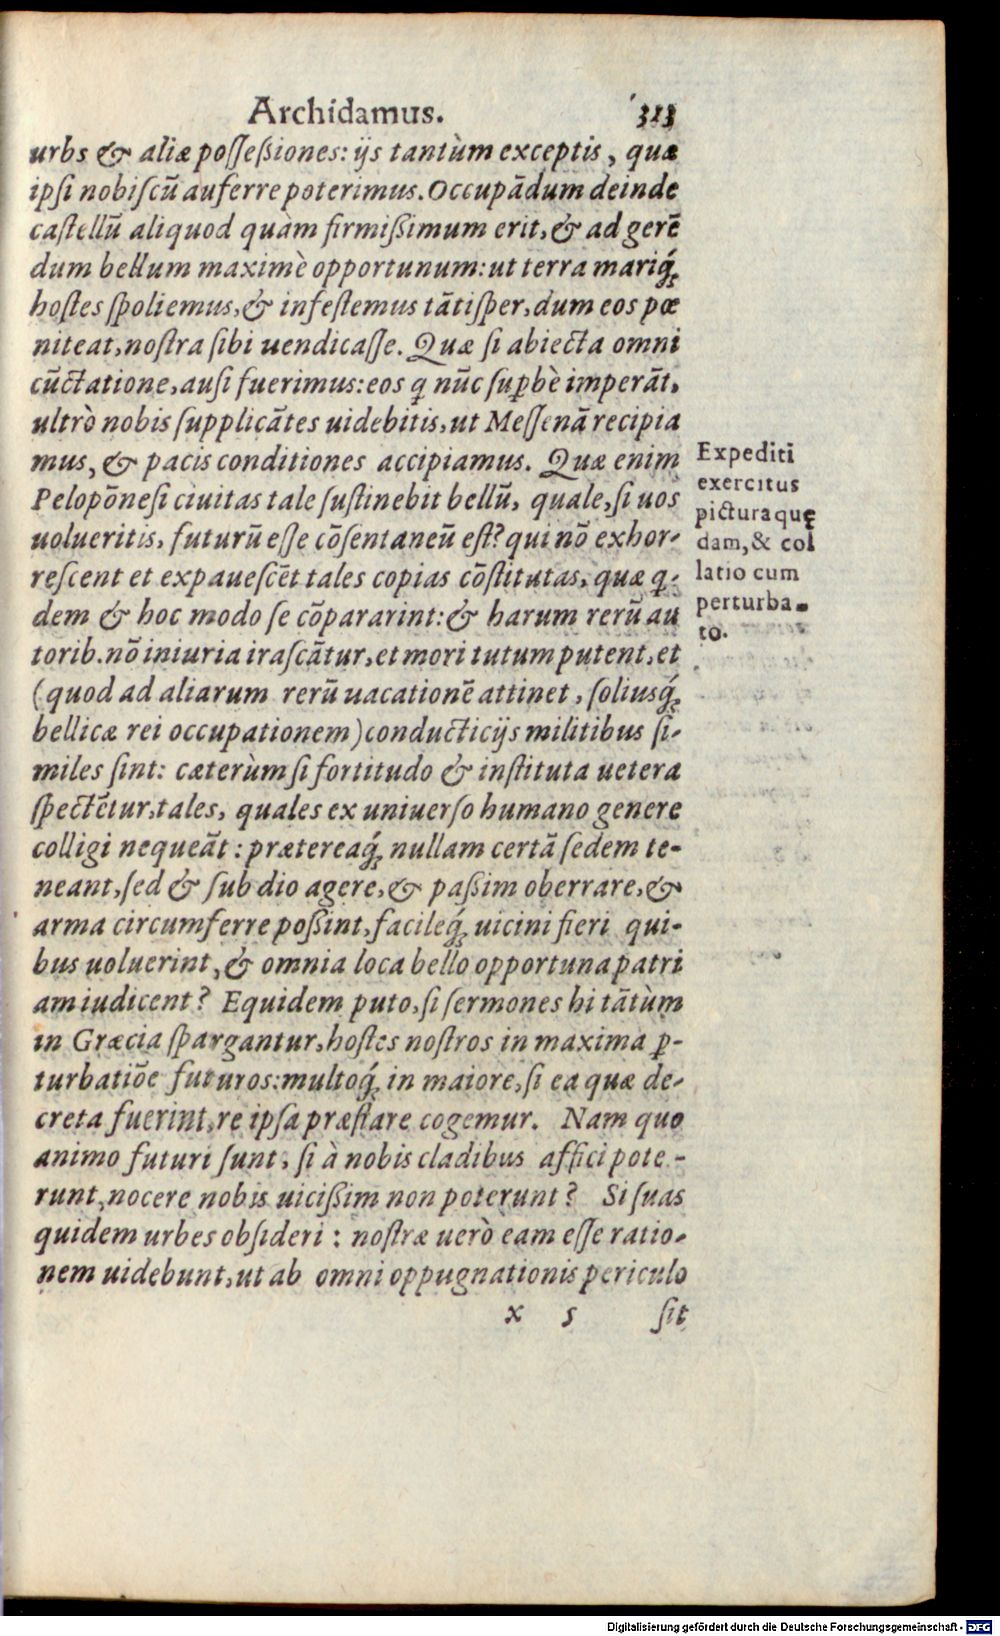 Archidamus. 313
urbs & aliæ poſſeßiones: ijs tantùm exceptis, quæ
ipſi nobiſcũ auferre poterimus. Occupãdum deinde
caſtellũ aliquod quàm firmißimum erit, & ad gerẽ
dum bellum maximè opportunum: ut terra mariq́ꝫ
hoſtes ſpoliemus, & infeſtemus tãtiſper, dum eos pœ
niteat, noſtra ſibi uendicaſſe. Quæ ſi abiecta omni
cũctatione, auſi fuerimus: eos q̃ nũc ſuꝑbè imperãt,
ultrò nobis ſupplicãtes uidebitis, ut Meſſenã recipia
mus, & pacis conditiones accipiamus. Quæ enim
Pelopõneſi ciuitas tale ſuſtinebit bellũ, quale, ſi uos
uolueritis, futurũ eſſe cõſentaneũ eſt? qui nõ exhor-
reſcent et expaueſcẽt tales copias cõſtitutas, quæ q̃-
dem & hoc modo ſe cõpararint: & harum rerũ au
torib. nõ iniuria iraſcãtur, et mori tutum putent, et
(quod ad aliarum rerũ uacationẽ attinet, ſoliusq́ꝫ
bellicæ rei occupationem) conducticijs militibus ſi-
miles ſint: cæterùm ſi fortitudo & inſtituta uetera
ſpectẽtur, tales, quales ex uniuerſo humano genere
colligi nequeãt: prætereaq́ꝫ nullam certã ſedem te-
neant, ſed & ſub dio agere, & paßim oberrare, &
arma circumferre poßint, facileq́ꝫ uicini fieri qui-
bus uoluerint, & omnia loca bello opportuna patri
am iudicent? Equidem puto, ſi ſermones hi tãtùm
in Græcia ſpargantur, hoſtes noſtros in maxima ꝑ-
turbatiõe futuros: multoq́ꝫ in maiore, ſi ea quæ de-
creta fuerint, re ipſa præſtare cogemur. Nam quo
animo futuri ſunt, ſi à nobis cladibus affici pote-
runt, nocere nobis uicißim non poterunt? Si ſuas
quidem urbes obſideri: noſtræ uerò eam eſſe ratio-
nem uidebunt, ut ab omni oppugnationis periculo
x 5 ſit
Expediti
exercitus
pictura quę
dam, & col
latio cum
perturba-
to.
Digitalisierung gefördert durch die Deutsche Forschungsgemeinschaft - DFG